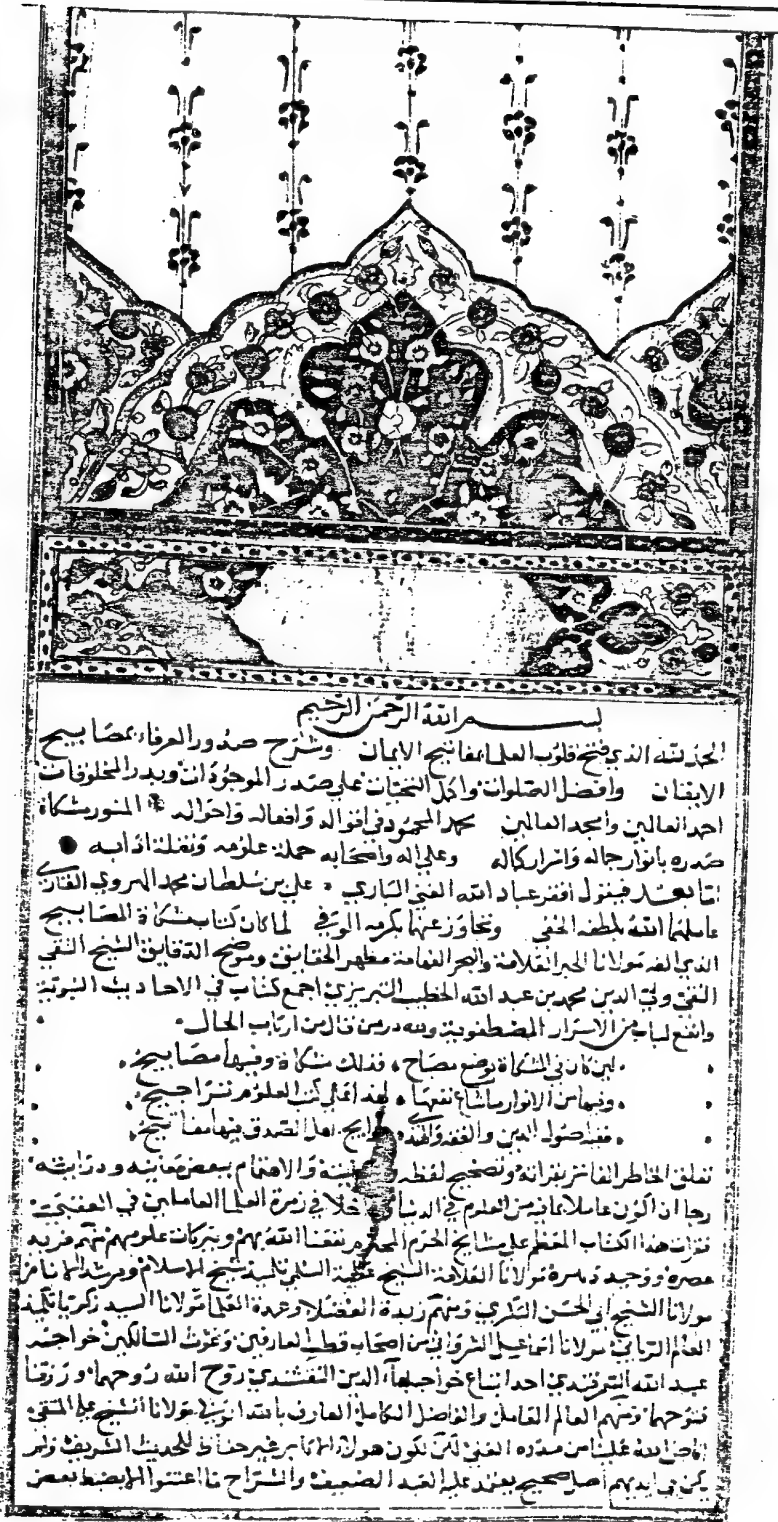 بسم الله الرحمن الرحيم
الحمد لله الذي فتح قلوب العلما بمفاتيح الايمان وشرح صدور العرفاء بمصابيح
الايقان وافضل الصلوات واكمل التحيات على صدر الموجودات وبدر المخلوقات
احمد العالمين وامجد العالمين محمد المحمود في اقواله وافعاله واحواله المنور مشكاة
صدره بانوار جماله واسرار كماله وعلى اله واصحابه حملة علومه ونقلة ادابه
اما بعد فيقول افقر عباد الله الغني الباري علي بن سلطان محمد الهروي القاري
عاملهما الله بلطفه الخفي وتجاوز عنهما بكرمه الوفي لما كان كتاب مشكاة المصابيح
الذي الفه مولانا الحبر العلامة والبحر الفهامة مظهر الحقايق وموضح الدقايق الشيخ التقي
النقي ولي الدين محمد بن عبد الله الخطيب التبريزي اجمع كتاب في الاحاديث النبوية
وانفع لباب من الاسرار المصطفوية ولله در من قال من ارباب الحال
لين كان في المشكاة يوضع مصباح فذلك مشكاة وفيها مصابيح
وفيها من الانوار ما شاع نفعها لهذا على كتب العلوم تراجيح
ففيه اصول الدين والفقه والهدى حوايج اهل الصدق منها مفاتيح
تعلق الخاطر الفاتر بقرائته وتصحيح لفظه والاهتمام ببعض معانيه ودرايته
رجا ان اكون عاملا بما فيه من العلوم في الدنيا داخلا في زمرة العلما العاملين في العقبى
فقرات هذا الكتاب المعظم على مشايخ الحرم المحترم نفعنا الله بهم وببركات علومهم منهم فريد
عصره ووحيد دهره مولانا العلامة الشيخ عطية السلمي تلميذ شيخ الاسلام ومرشد الانام
مولانا الشيخ ابي الحسن البكري ومنهم زبدة الفضلا وعمدة العلما مولانا السيد زكريا تلميذ
العالم الرباني مولانا اسماعيل الشرواني من اصحاب قطب العارفين وغوث السالكين خواجه
عبيد الله السمرقندي احد اتباع خواجه بهاء الدين النقشبندي روح الله روحهما ورزقنا
فتوحهما ومنهم العالم العامل والفاضل الكامل العارف بالله مولانا الشيخ علي المتقي
افاض الله علينا من مدده العلي لكن لكون هولاء الاكابر غير حفاظ للحديث الشريف ولم
يكن في ايديهم اصل صحيح يعتمد عليه العبد الضعيف والشراح ما اعتنوا الا بضبط بعض